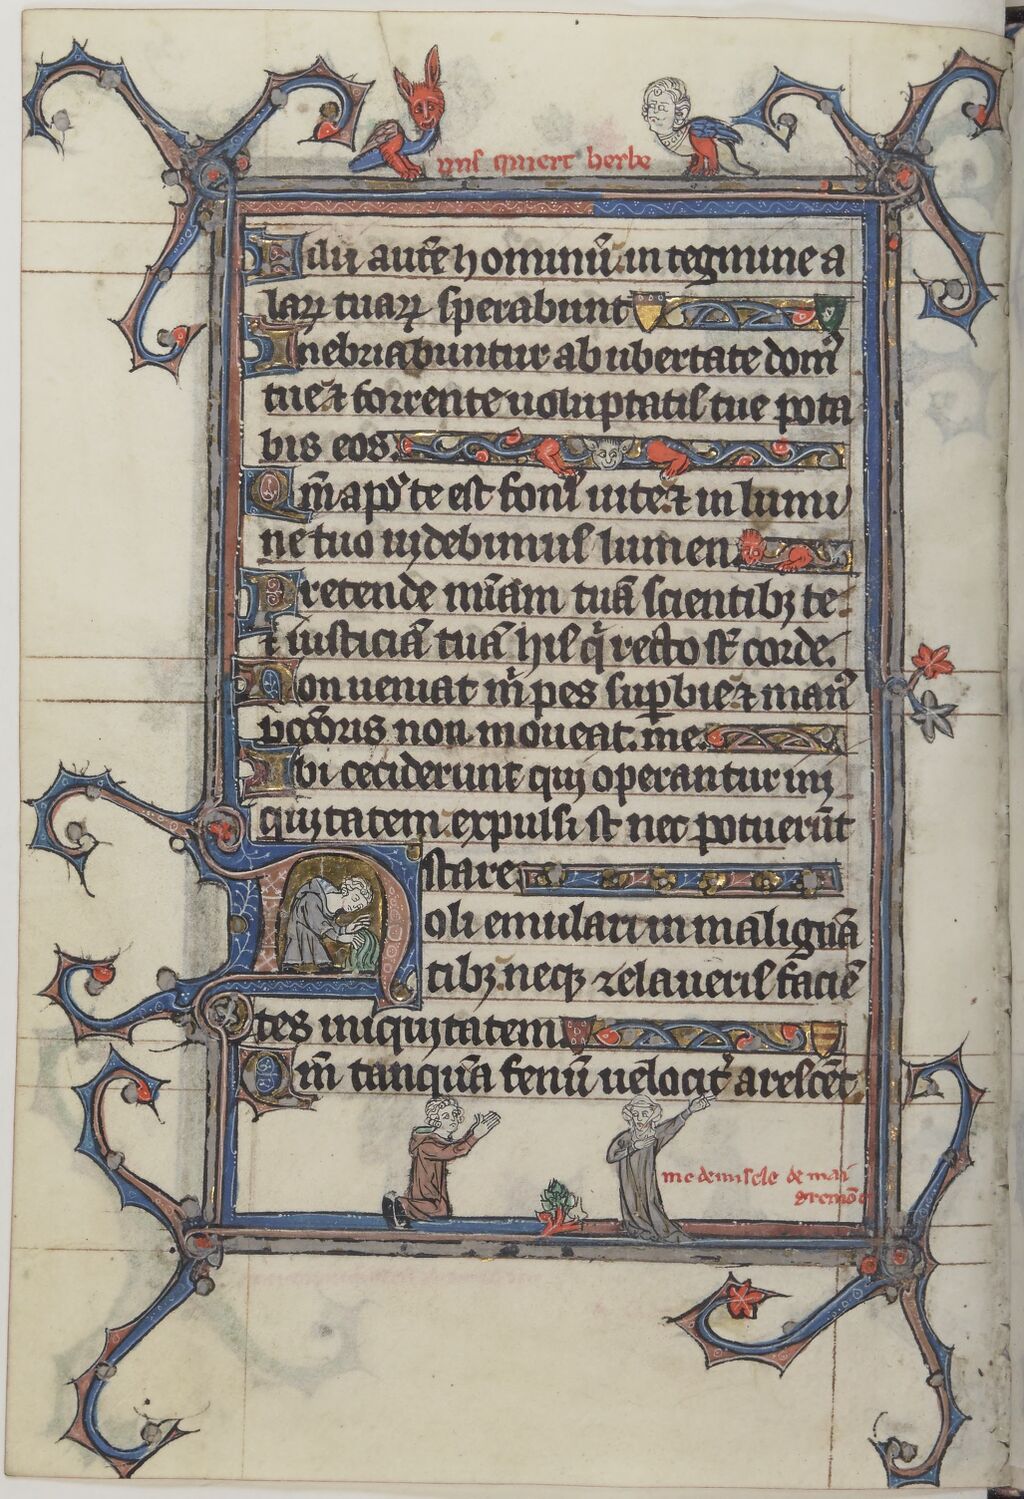 uns quiert herbe
Filij autē hominū in tegmine a
larꝝ tuarꝝ sperabunt
Inebriabuntur ab ubertate dom᷒
tue ⁊ torrente uoluptatis tue pota
bis eos.
Qm̄ apd̕ te est fons uite ⁊ in lumi
ne tuo uidebimus lumen.
Pretende mīam tuā scientibꝫ te
⁊ iusticiā tuā his q̄ recto st̄ corde.
Non ueniat m̄ pes supbie ⁊ man᷒
pctōris non moueat me.
Ibi ceciderunt qui operantur ini
quitatem expulsi st̄ nec potuerūt
stare.
Noli emulari in malignā
tibꝫ neqꝫ zelaueris faciē
tes iniquitatem.
Qm̄ tanquā fenū uelocit᷑ arescēt
me demisele de mai
gremōt